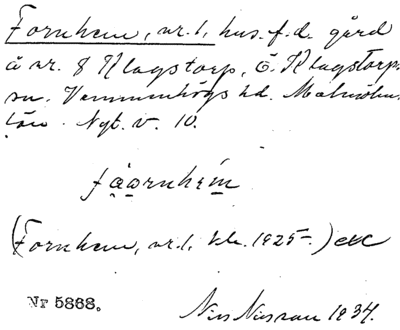 Fornhem, nr. 1, hus. f.d. gård
å nr. 8 Klagstorp, Ö. Klagstorps
sn. Vemmenhögs hd. Malmöhus
län. Nyb. v. 10.
fåornhém
(Fornhem, nr. 1, 1925 .)
Nr 5868.
Nils Nilsson 1934.